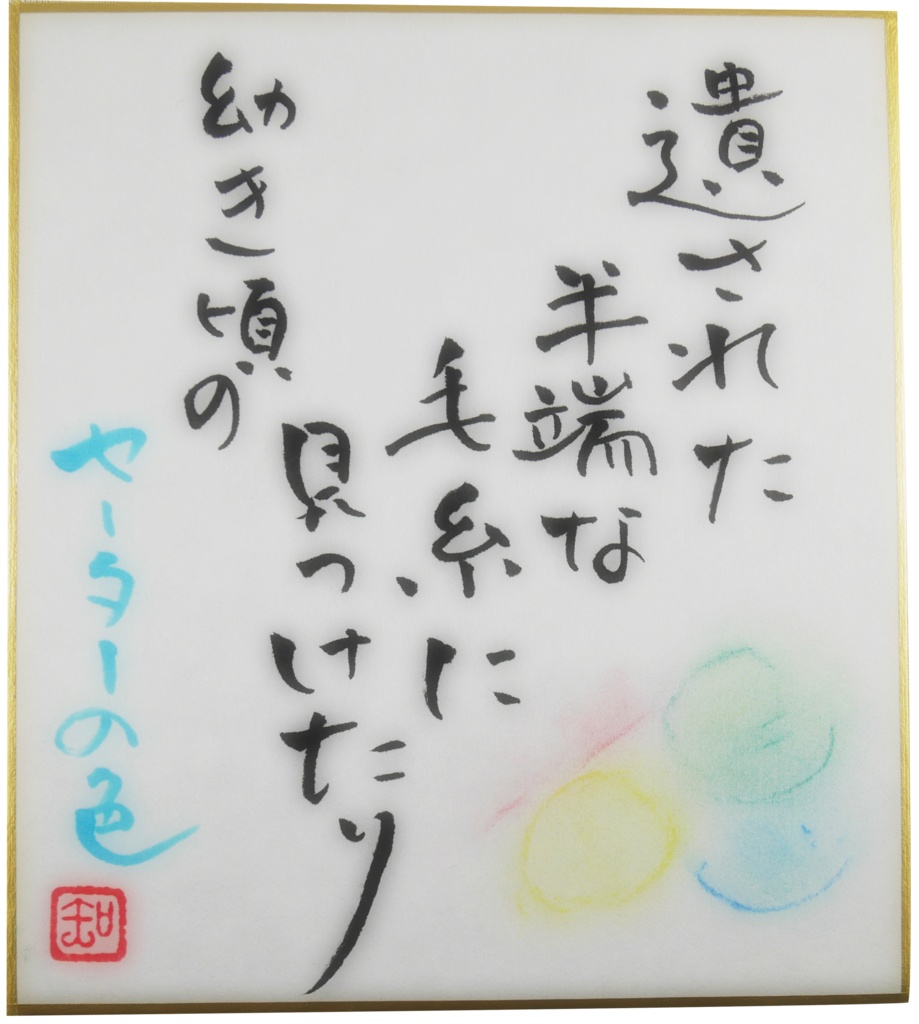 遺された
半端な
毛糸に
見つけたり
幼き頃の
セーターの色
知